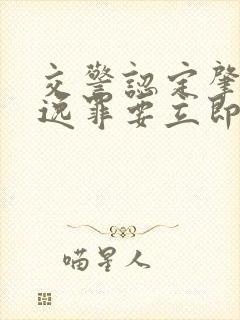 交警認定肇
逃罪要立即
喵星人